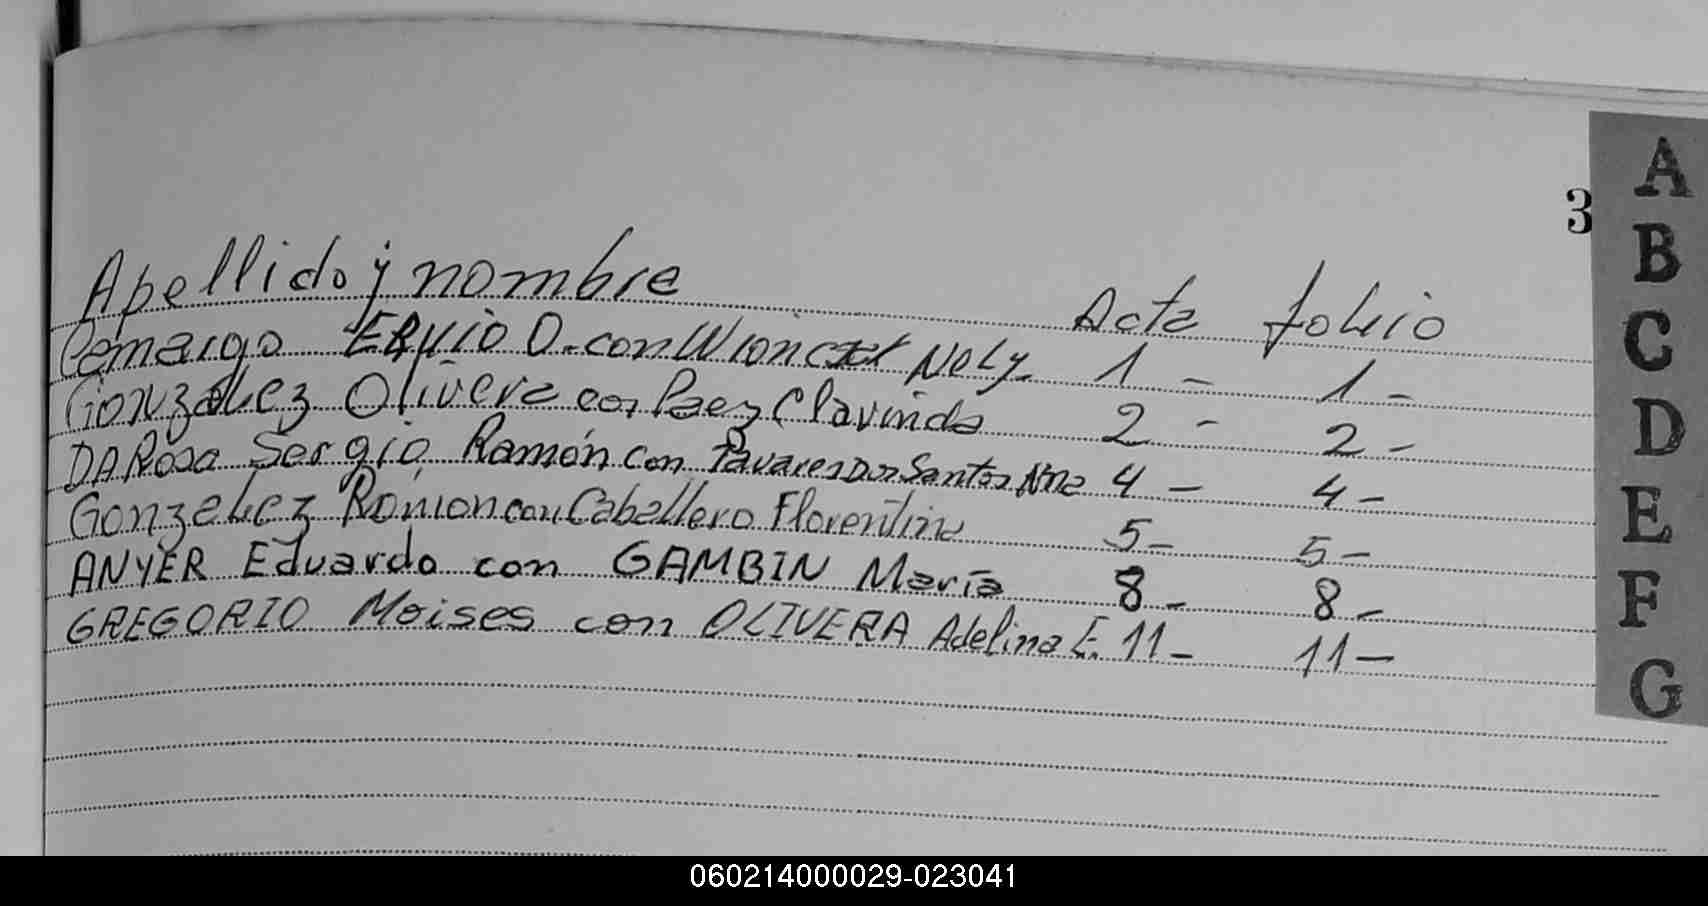 3
A
B
C
D
E
F
G
Apellido y nombre Acta folio
Camargo Ervio O. con Wionczak Nely. 1 - 1 -
González Olivera con Paez Clavinda 2 - 2 -
DA Rosa Sergio Ramón con Tavares Dos Santos Ana 4 - 4 -
Gonzalez Ramon con Caballero Florentina 5 - 5 -
ANYER Eduardo con GAMBIN María 8 - 8 -
GREGORIO Moises con OLIVERA Adelina E. 11 - 11 -
060214000029-023041